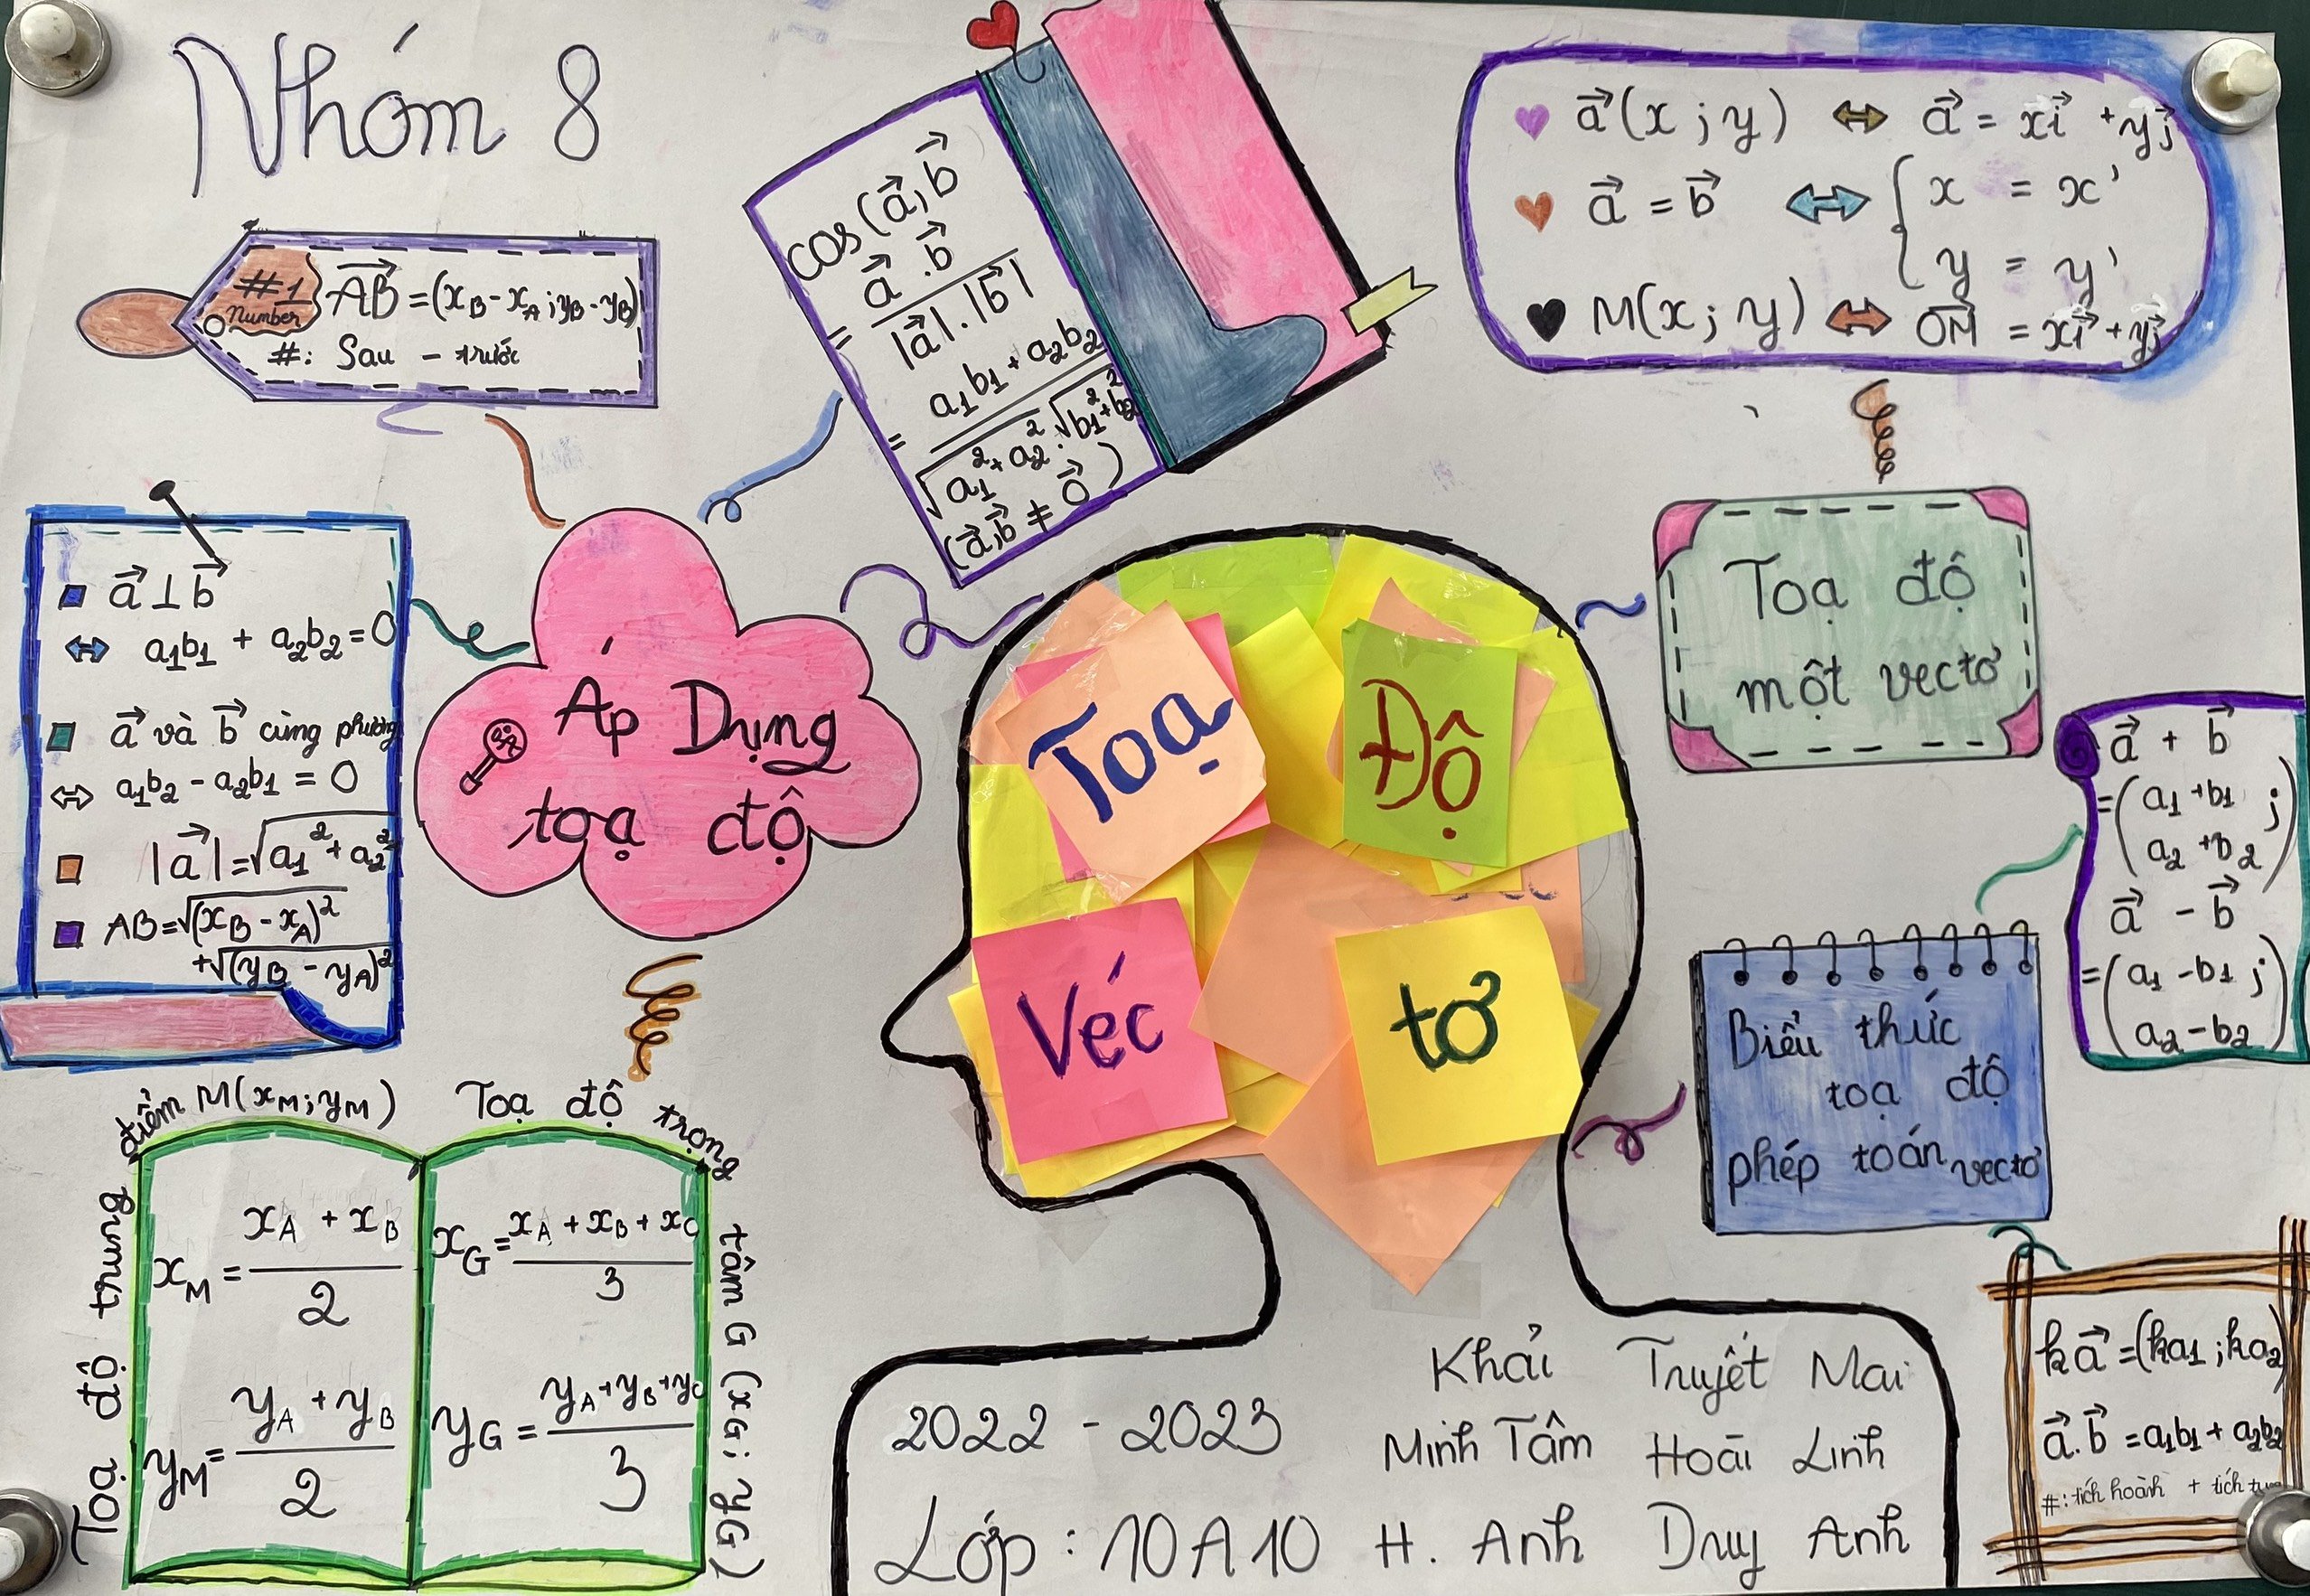 Nhóm 8
#1
Number
AB⃗ = (x_B - x_A ; y_B - y_B)
#: Sau - trước
cos(a⃗, b⃗
= a⃗ . b⃗ / |a⃗| . |b⃗|
= a₁b₁ + a₂b₂ / √a₁² + a₂² . √b₁² + b₂²
(a⃗, b⃗ ≠ 0⃗)
a⃗(x ; y) ⇔ a⃗ = xi⃗ + yj⃗
a⃗ = b⃗ ⇔ { x = x'
y = y'
M(x ; y) ⇔ OM⃗ = xi⃗ + yj⃗
a⃗ ⊥ b⃗
⇔ a₁b₁ + a₂b₂ = 0
a⃗ và b⃗ cùng phương
⇔ a₁b₂ - a₂b₁ = 0
|a⃗| = √a₁² + a₂²
AB = √(x_B - x_A)²
+ √(y_B - y_A)²
Áp Dụng
toạ độ
Toạ
Độ
Véc
tơ
Toạ độ
một vectơ
a⃗ + b⃗
= (a₁ + b₁ ;
a₂ + b₂)
a⃗ - b⃗
= (a₁ - b₁ ;
a₂ - b₂)
Biểu thức
toạ độ
phép toán vectơ
ka⃗ = (ka₁ ; ka₂)
a⃗ . b⃗ = a₁b₁ + a₂b₂
#: tích hoành + tích
Toạ độ trung điểm M(x_M ; y_M)
x_M = x_A + x_B / 2
y_M = y_A + y_B / 2
Toạ độ trọng tâm G (x_G ; y_G)
x_G = x_A + x_B + x_C / 3
y_G = y_A + y_B + y_C / 3
2022 - 2023
Lớp : 10A10
Khải Truyết Mai
Minh Tâm Hoài Linh
H. Anh Duy Anh